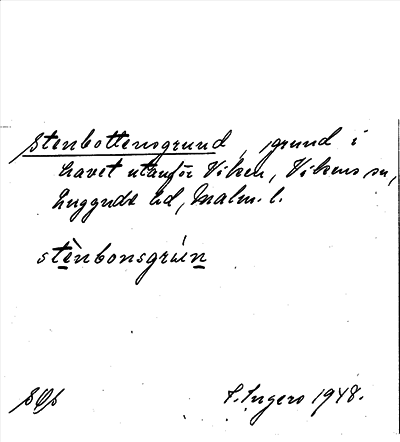 Stenbottensgrund, grund i
havet utanför Viken, Vikens sn,
Luggude hd, Malm. l.
stènbonsgrún
SOS
S. Ingers 1948.